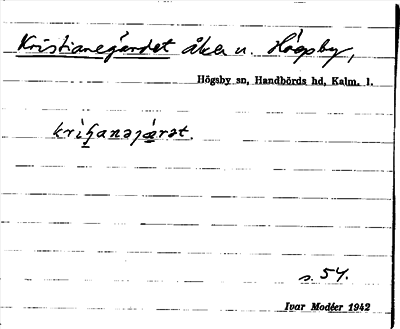 Kristianegärdet åker u. Högsby,
Högsby sn, Handbörds hd, Kalm. l.
s. 54.
Ivar Modéer 1942